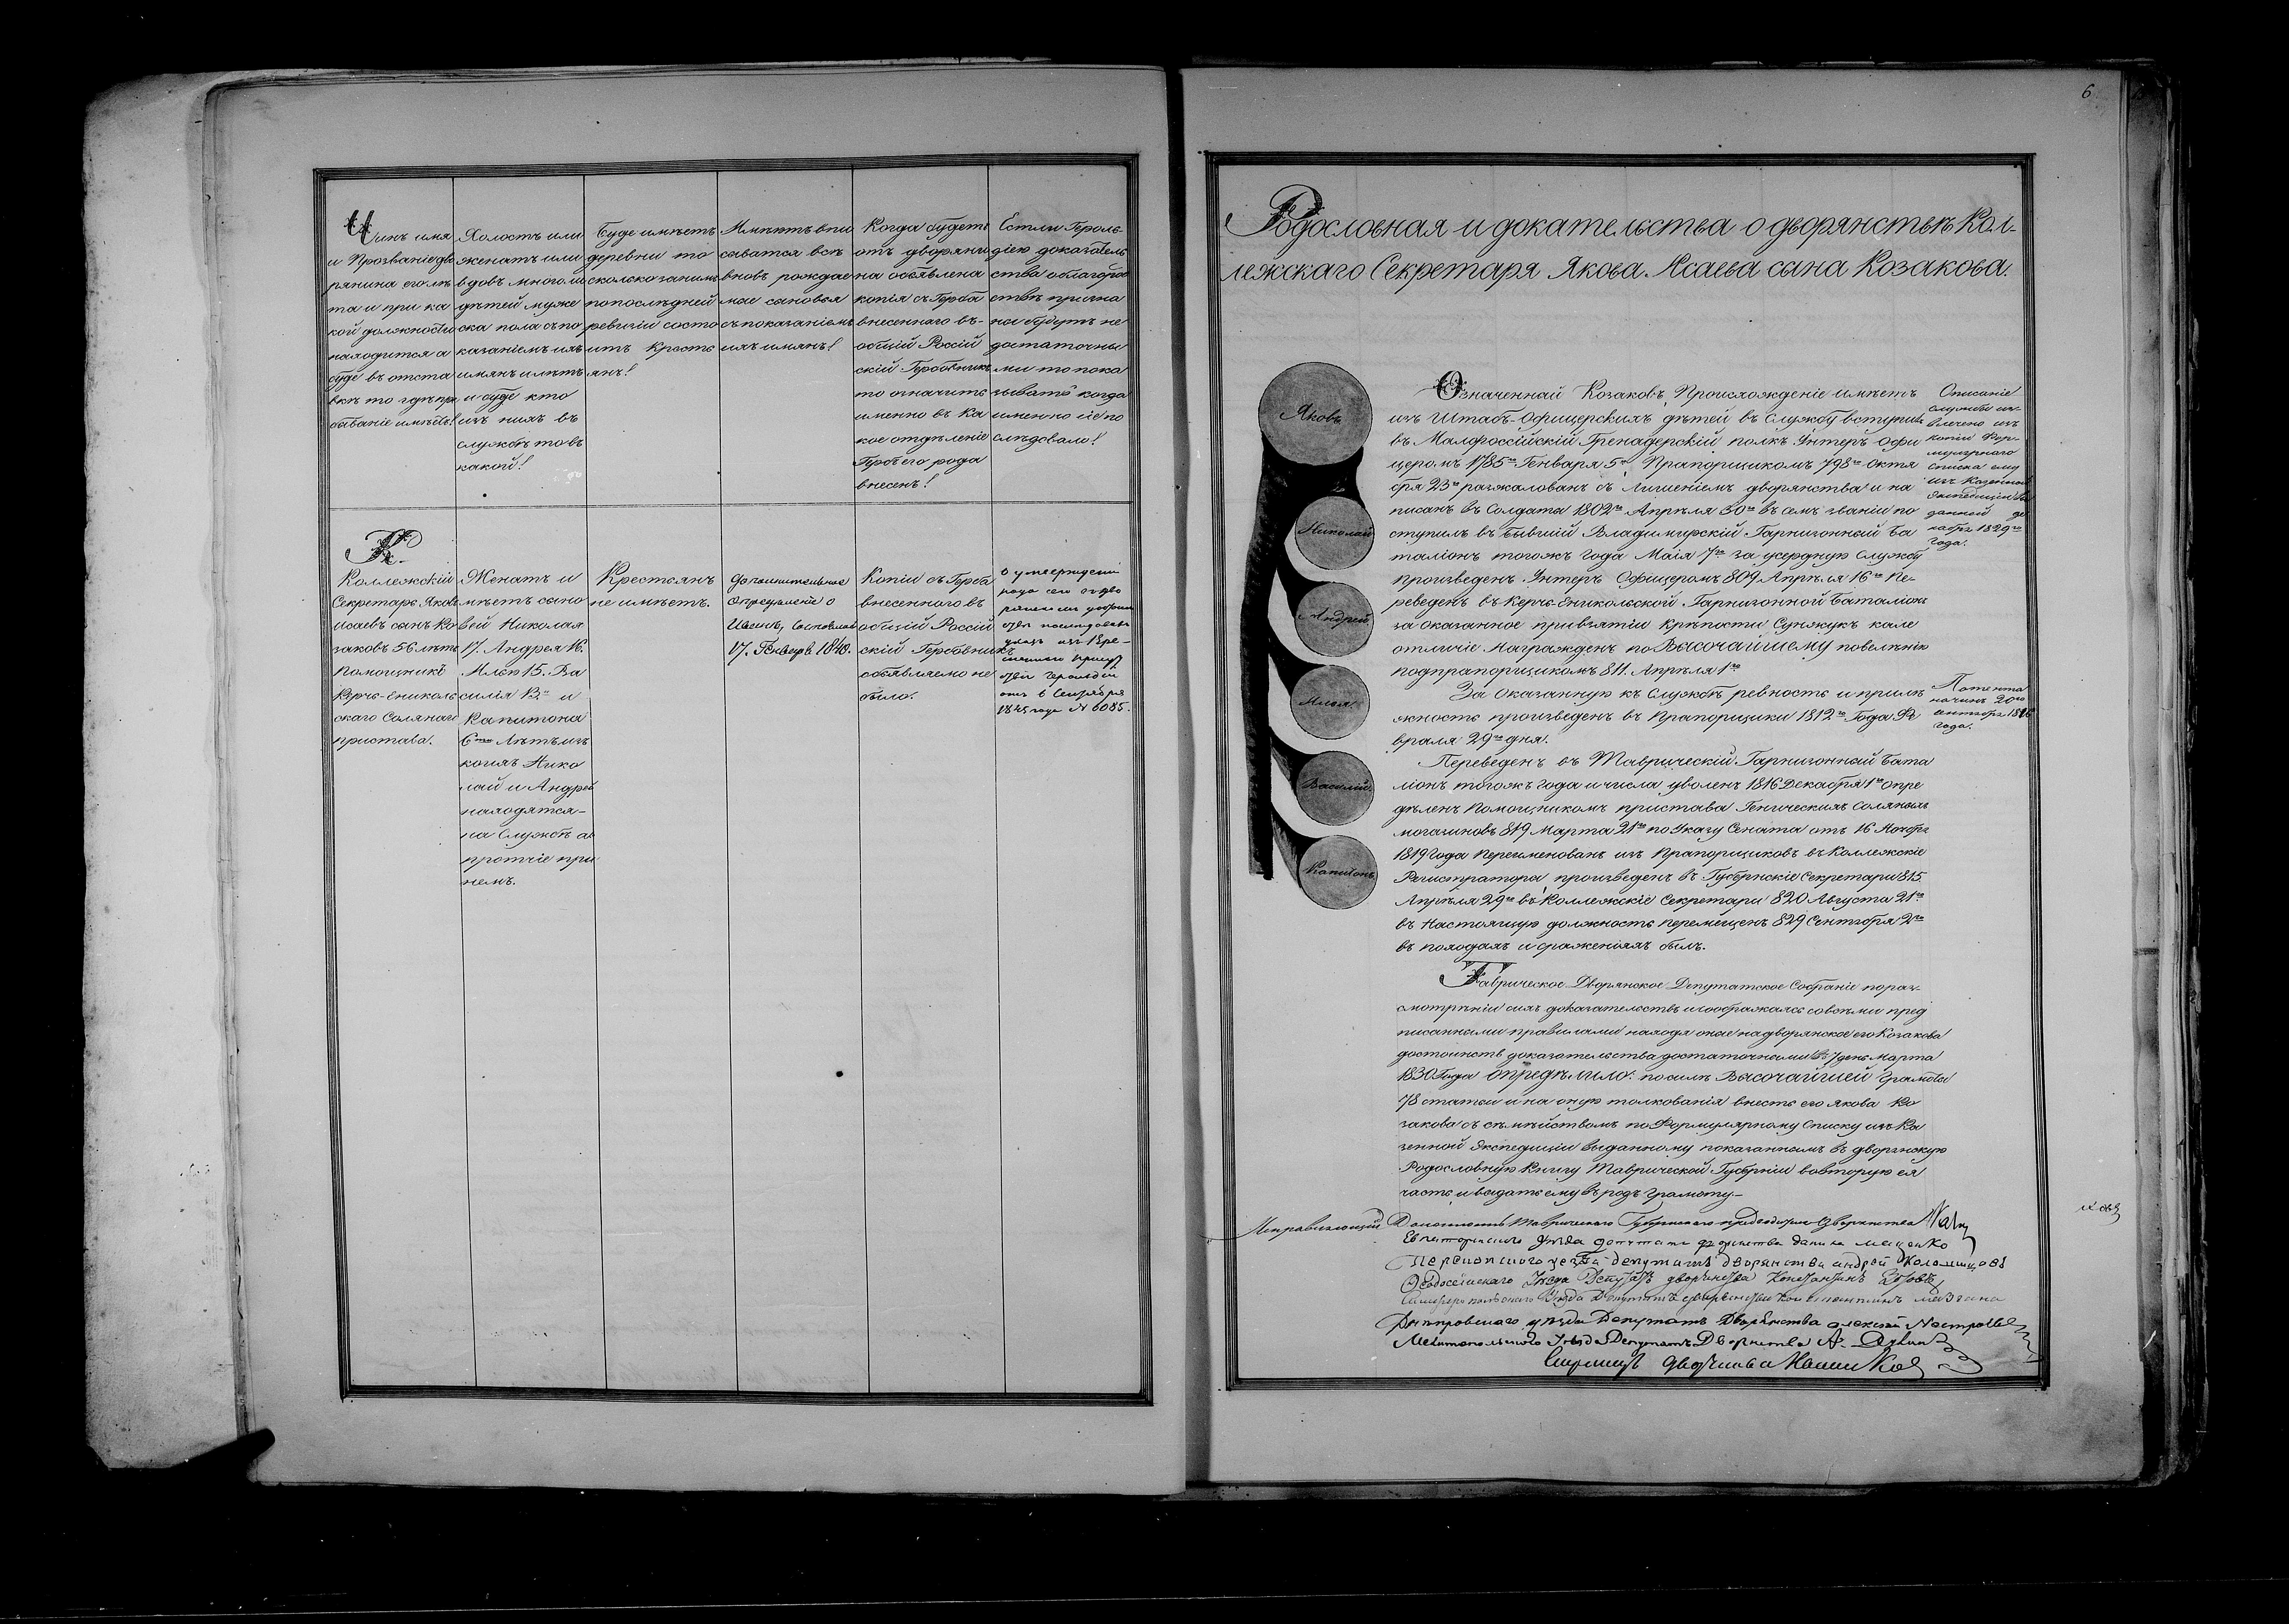 Чинъ имя
и Прозваніе дво
рянина его лѣ
та и при ка
кой должности
находится а
буде въ отста
вкѣ то гдѣ пре
бываніе имѣетъ!
Холостъ или
женатъ или
вдовъ много ли
дѣтей муже
ска пола съ по
казаніемъ ихъ
имянъ и лѣтъ
и буде кто
изъ нихъ въ
службѣ то въ
какой!
Буде имѣетъ
деревни то
сколко за нимъ
по послѣдней
ревизіи состо
итъ Кресть
янъ!
Имѣютъ впи
сыватся всѣ
вновь рождае
мые сыновья
съ показаніемъ
ихъ имянъ!
Когда будетъ
отъ дворяни
на объявлена
копія съ Герба
внесеннаго въ
общій Россій
скій Гербовникъ
то означить
именно въ ка
кое отдѣленіе
Гербъ его рода
внесенъ!
Естли Героль
діею доказатель
ства о благород
ствѣ призна
ны будутъ не
достаточны
ми то пока
зывать когда
именно сіе по
слѣдовало!
К.
Коллежскій
Секретарь Яковъ
Исаевъ сынъ Ко
заковъ 56 лѣтъ
Помощникъ
Керчь-Ениколь
скаго Солянаго
пристава.
Женатъ и
имѣетъ сыно
вей Николая
17. Андрея 16.
Илью 15. Ва
силія 13 и
Капитона
6 Лѣтъ изъ
коихъ Нико
лай и Андрей
находятся
на Службѣ а
протчіе при
немъ.
Крестьянъ
не имѣетъ.
Дополнительное
опредѣленіе о
состоялось
17. Генваря 1840.
Копіи съ Герба
внесеннаго въ
общій Россій
скій Гербовникъ
объявляемо не
было.
О утвержденіи
рода сего въ дво
рянскомъ достоин
ствѣ послѣдовалъ
указъ изъ Вре-
меннаго Присут
ствія Герольдіи
отъ 6 Сентября
1845 года № 6085.
6
Родословная и докательства о дворянствѣ Кол-
лежскаго Секретаря Якова Исаева сына Козакова.
Яковъ
Николай
Андрей
Илья
Василій
Капитонъ
Означенный Козаковъ, Происхожденіе имѣетъ
изъ Штабъ-Офицерскихъ дѣтей въ Службу вступилъ
въ Малороссійскій Гренадерскій полкъ Унтеръ Офи
церомъ 1785 Генваря 5 Прапорщикомъ 798 Октя
бря 23 разжалованъ съ лишеніемъ дворянства и на
писанъ въ Солдаты 1802 Апрѣля 30 въ семъ званіи по
ступилъ въ бывшій Владимирскій Гарнизонный Ба
таліонъ тогожъ года Маія 7 за усердную Службу
произведенъ Унтеръ Офицеромъ 809 Апрѣля 16 Пе-
реведенъ въ Керчь-Еникольской Гарнизонной Баталіонъ
за оказанное при взятіи крѣпости Сунжукъ кале
отличіе Награжденъ по Высочайшему повелѣнію
подпрапорщикомъ 811. Апрѣля 1
За оказанную къ Службѣ ревность и прилѣ
жность произведенъ въ Прапорщики 1812 Года Фе
враля 29 дня.
Переведенъ въ Таврическій Гарнизонный Бата
ліонъ тогожъ года и числа уволенъ 1816 Декабря 1 опре
дѣленъ Помощникомъ пристава Геническихъ Соляныхъ
магазиновъ 819 Марта 21 по Указу Сената отъ 16 Ноября
1819 года Переименованъ изъ Прапорщиковъ въ Коллежскіе
Регистраторы, произведенъ въ Губернскіе Секретари 815
Апрѣля 29 въ Коллежскіе Секретари 820 Августа 21
въ Настоящую должность перемѣщенъ 829 Сентября 2
въ походахъ и сраженіяхъ былъ.
Описаніе
службы из-
влечено изъ
копіи Фор-
мулярнаго
списка ему
изъ Казенной
Экспедиціи вы
данной де
кабря 1829
года.
Патента
на чинъ 20
сентября 1816
года.
Таврическое Дворянское Депутатское Собраніе по раз-
смотрѣніи сихъ доказательствъ и соображаясь со всѣми пред
писанными правилами находя оные на дворянское его Козакова
достоинство доказательства достаточными въ 7 день Марта
1830 Года опредѣлило: по силѣ Высочайшей Грамоты
78 статьи и на оную толкованія внесть его Якова Ко
закова съ сѣмѣйствомъ по Формулярному Списку изъ Ка
зенной Экспедиціи выданному показаннымъ въ дворянскую
Родословную Книгу Таврической Губерніи во вторую ея
часть и выдать ему въ родъ грамоту.
Исправляющій Должность Таврическаго Губернскаго предводителя Дворянства
Евпаторійскаго уѣзда депутатъ дворянства
Перекопскаго уезда депутатъ дворянства андрей
Ѳеодосійскаго Уѣзда Депутатъ дворянства Константинъ
Симферопольскаго Уѣзда Депутатъ дворянства Константинъ
Днѣпровскаго уѣзда Депутатъ Дворянства алексей
Мелитопольскаго Уѣзда Депутатъ Дворянства А.
Секретарь дворянства